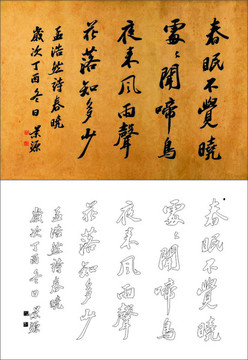 春眠不覺曉
處〻聞啼鳥
夜来風雨聲
花落知多少
孟浩然诗春曉
歲次丁酉冬日 景源
春眠不覺曉
處〻聞啼鳥
夜来風雨聲
花落知多少
孟浩然诗春曉
歲次丁酉冬日 景源